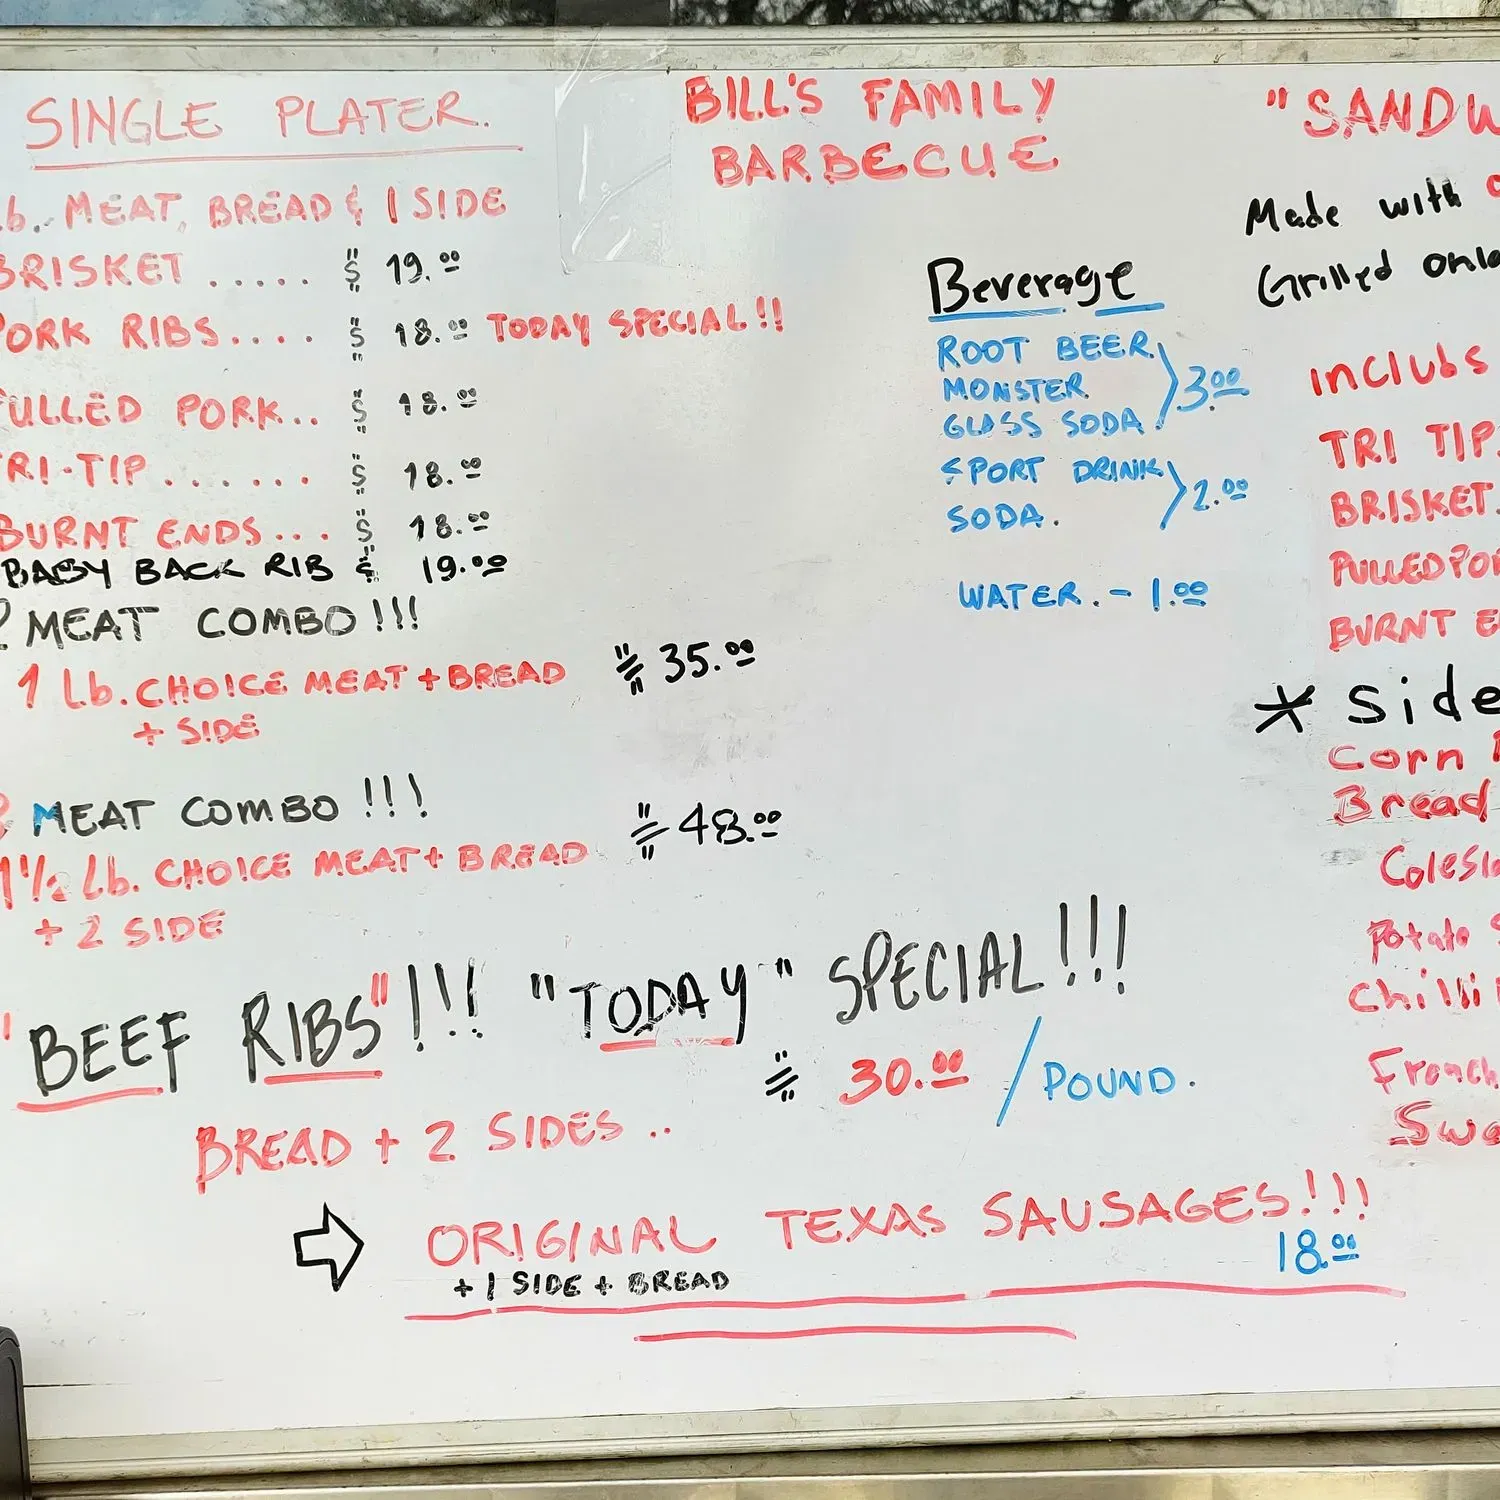 SINGLE PLATER.
lb. MEAT, BREAD & 1 SIDE
BRISKET ..... $ 19.00
PORK RIBS.... $ 18.00 TODAY SPECIAL!!
PULLED PORK... $ 18.00
TRI-TIP....... $ 18.00
BURNT ENDS... $ 18.00
BABY BACK RIB $ 19.00
MEAT COMBO!!!
1 Lb. CHOICE MEAT + BREAD $ 35.00
+ SIDE
MEAT COMBO!!!
1 1/2 Lb. CHOICE MEAT + BREAD $ 48.00
+ 2 SIDE
"BEEF RIBS"!!! "TODAY" SPECIAL!!!
$ 30.00 / POUND.
BREAD + 2 SIDES..
ORIGINAL TEXAS SAUSAGES!!!
+ 1 SIDE + BREAD 18.00
BILL'S FAMILY
BARBECUE
Beverage
ROOT BEER
MONSTER 3.00
GLASS SODA
SPORT DRINK
SODA. 2.00
WATER. - 1.00
"SANDW
Made with
Grilled
IncluBs
TRI TIP
BRISKET.
PULLED POR
BURNT E
* Side
Corn
Bread
Colesl
Potato S
Chilli
French
Swe